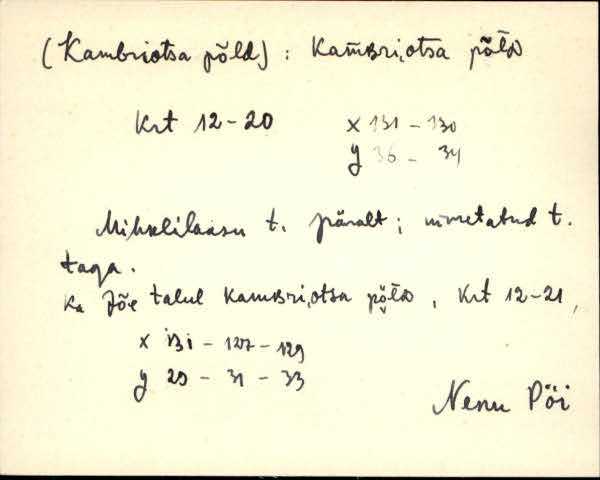 (Kambriotsa põld) : Kamʙri,otsa põlᴅ
Krt 12-20 x 131 - 130
y 36 - 34
Mihklilaasu t. päralt ; nimetatud t.
taga.
Ka Jõe talul Kamʙri,otsa põlᴅ , Krt 12-21,
x 131 - 127 - 129
y 29 - 31 - 33
Nenu Pöi